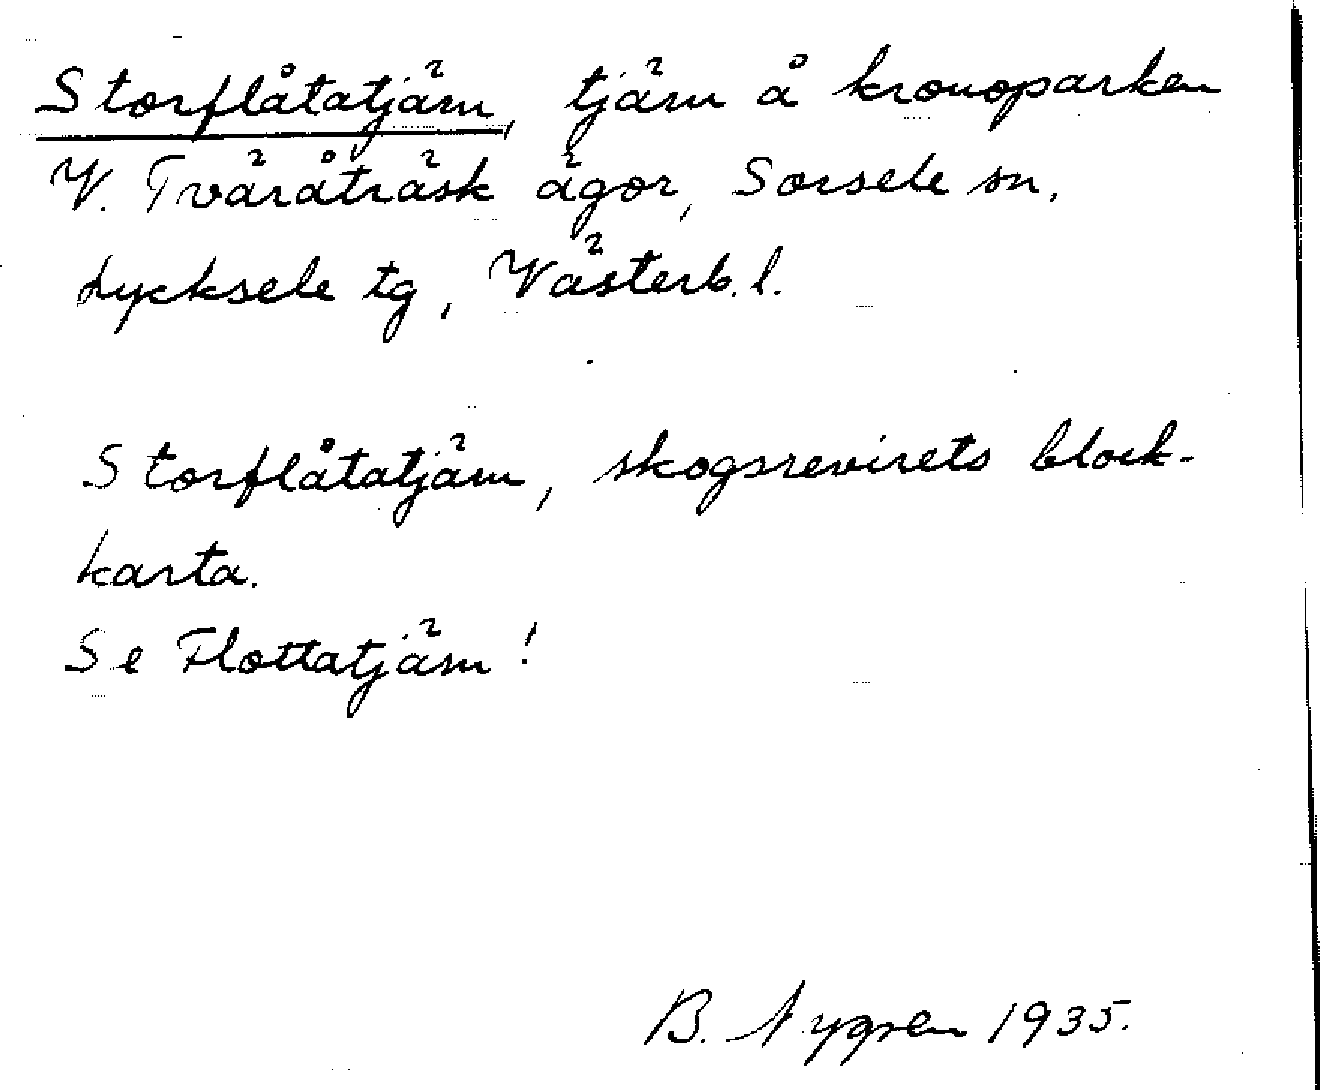 Storflåtatjärn, tjärn å kronoparken
V. Tväråträsk ägor, Sorsele sn,
Lycksele tg, Västerb. l.
Storflåtatjärn, skogsrevirets block-
karta.
Se Flottatjärn!
B. Nygren 1935.